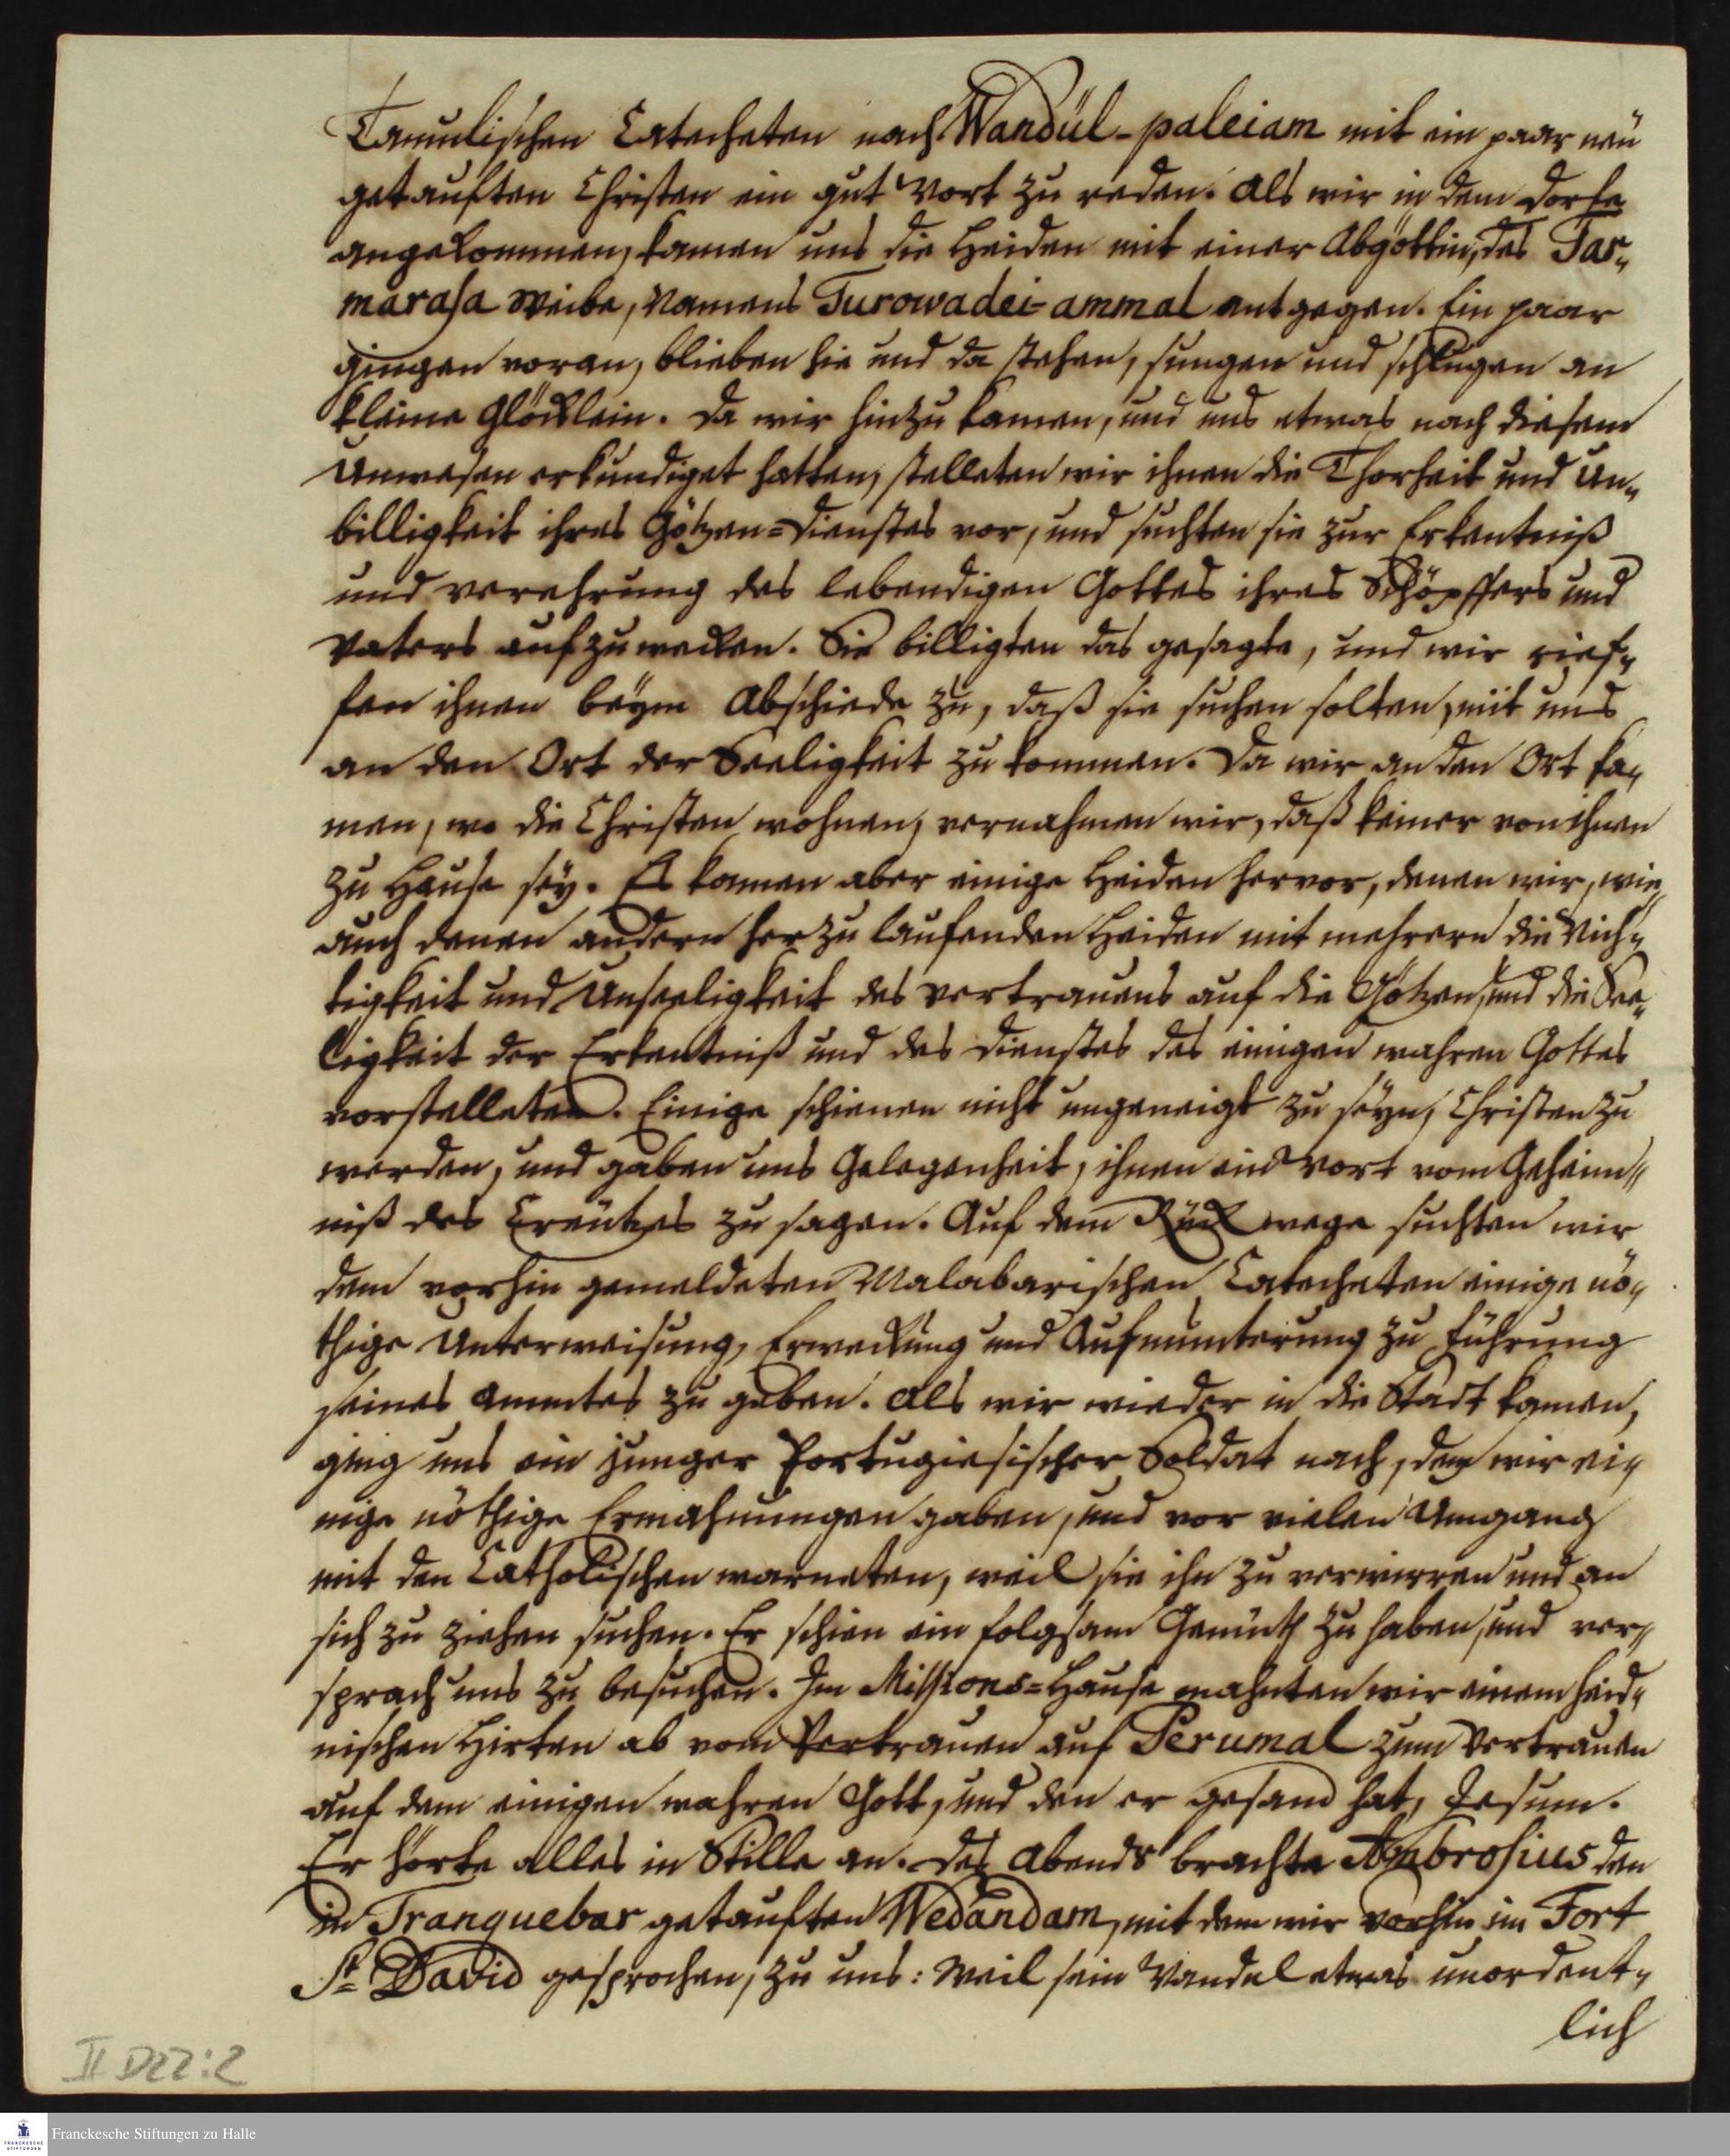 Tamulischen Catecheten nach Wandül-paleiam mit ein paar neü
getauften Christen ein gut Wort zu reden. Als wir in dem Dorfe
angekommen, kamen uns die Heiden mit einer Abgöttin, des Tar„
marasa Weibe, Namens Turowadei-ammal entgegen. Ein paar
gingen voran, blieben hie und da stehen, sungen und schlugen an
kleine Glöcklein. Da wir hinzu kamen, und uns etwas nach diesem
Unwesen erkundiget hatten, stelleten wir ihnen die Thorheit und Un„
billigkeit ihres Götzen=Dienstes vor, und suchten sie zur Erkentniß
und Verehrung des lebendigen Gottes ihres Schöpffers und
Vaters aufzuwecken. Sie billigten das gesagte, und wir rief„
fen ihnen beÿm Abschiede zu, daß sie suchen solten, mit uns
an den Ort der Seeligkeit zu kommen. Da wir an den Ort ka„
men, wo die Christen wohnen, vernahmen wir, daß keiner von ihnen
zu Hause seÿ. Es kamen aber einige Heiden hervor, denen wir, wie
auch denen andern herzu laufenden Heiden mit mehrern die Nich„
tigkeit und Unseeligkeit des Vertrauens auf die Götzen, und die See„
ligkeit der Erkentniß und des Dienstes des einigen wahren Gottes
vorstelleten. Einige schienen nicht ungeneigt zu seÿn, Christen zu
werden, und gaben uns Gelegenheit, ihnen ein Wort vom Geheim„
niß des Creützes zu sagen. Auf dem Rück wege suchten wir
dem vorhin gemeldeten Malabarischen Catecheten einige nö„
thige Unterweisung, Erweckung und Aufmunterung zu Führung
seines Ammtes zu geben. Als wir wieder in die Stadt kamen,
ging uns ein junger Portugiesischer Soldat nach, dem wir ei„
nige nöthige Ermahnungen gaben, und vor vielen Umgang
mit den Catholischen warneten, weil sie ihn zu verwirren und an
sich zu ziehen suchen. Er schien ein folgsam Gemüth zu haben, und ver„
sprach uns zu besuchen. Im Missions=Hause mahnten wir einem heid„
nischen Hirten ab vom Vertrauen auf Perumal zum Vertrauen
auf dem einigen wahren Gott, und den er gesand hat, Jesum.
Er hörte alles in Stille an. Des Abends brachte Ambrosius den
in Tranquebar getauften Wedandam, mit dem wir vorhin im Fort
St David gesprochen, zu uns: Weil sein Wandel etwas unordent„
lich
II D22:2
FRANCKESCHE STIFTUNGEN
Franckesche Stiftungen zu Halle